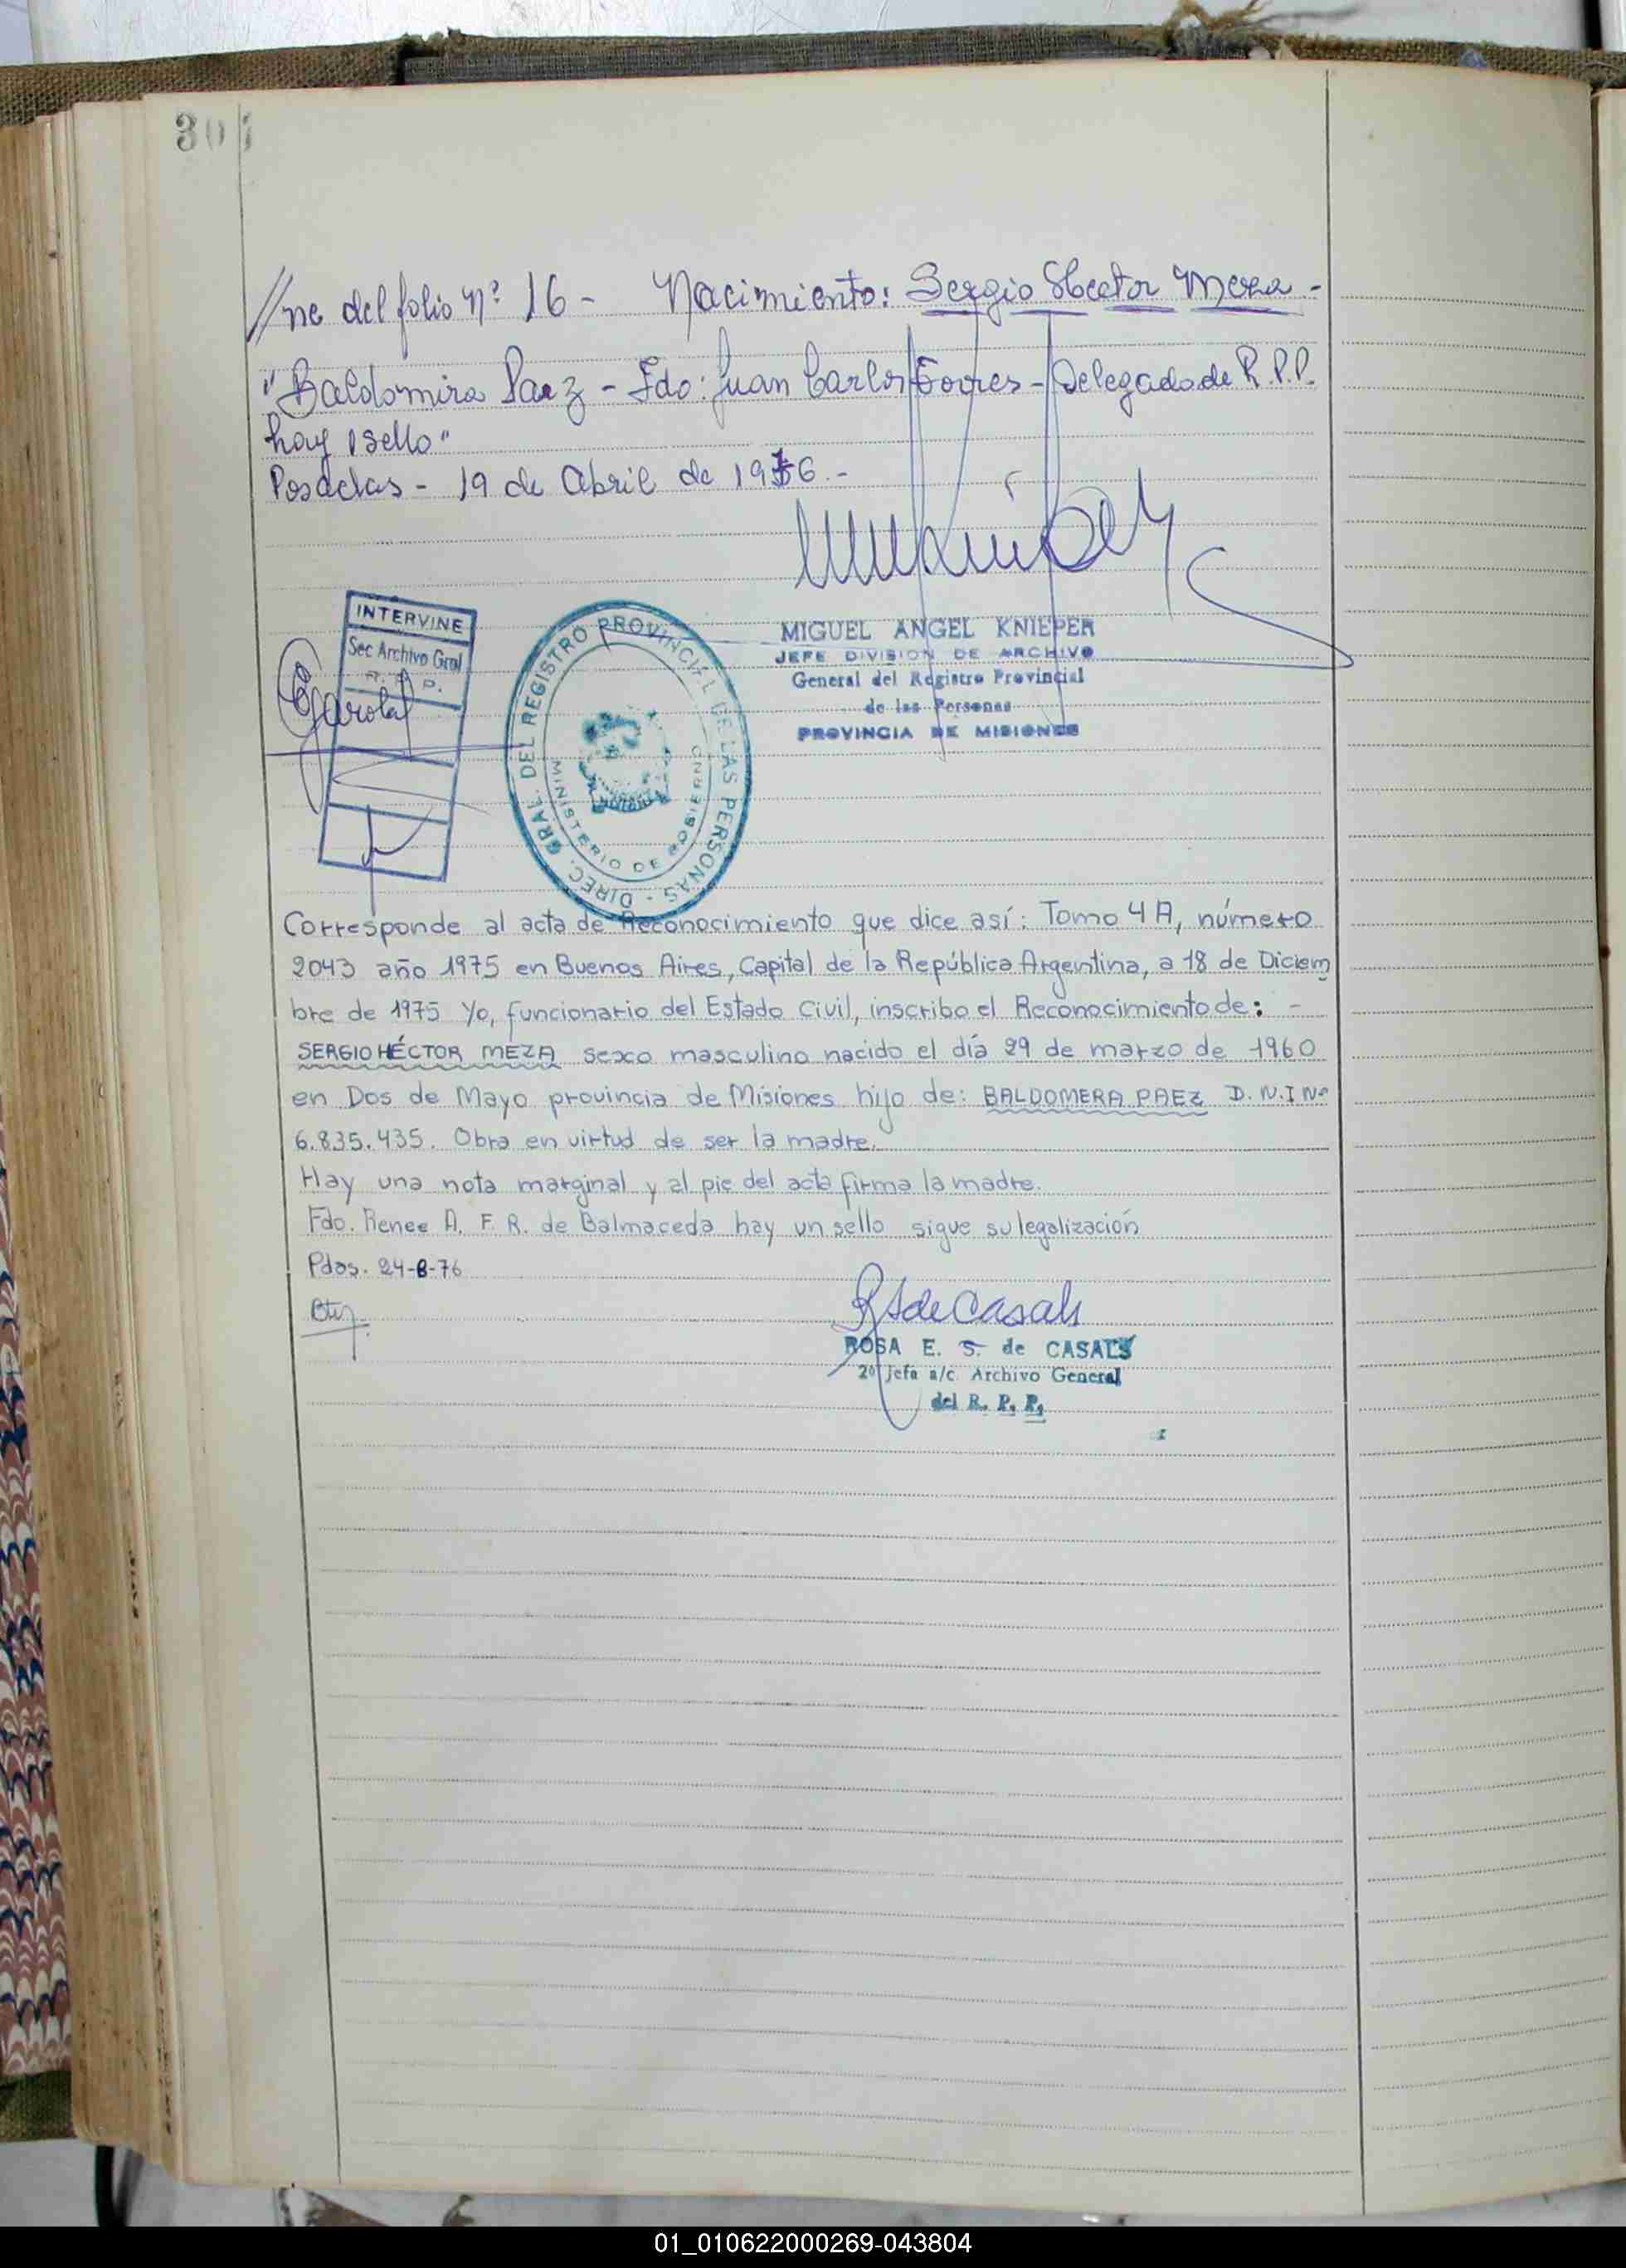 //ne del folio Nº 16 - Nacimiento: Sergio Hector Meza -
"Baldomira Paez - Fdo: Juan Carlos Torres - Delegado de R.P.P.
hay 1 sello"
Posadas - 19 de Abril de 1976.-
INTERVINE
Sec Archivo Gral
R. P. P.
DIREC. GRAL. DEL REGISTRO PROVINCIAL DE LAS PERSONAS -
MINISTERIO DE GOBIERNO
MIGUEL ANGEL KNIEPER
JEFE DIVISION DE ARCHIVO
General del Registro Provincial
de las Personas
PROVINCIA DE MISIONES
Corresponde al acta de Reconocimiento que dice así: Tomo 4 A, número
2043 año 1975 en Buenos Aires, Capital de la República Argentina, a 18 de Diciem
bre de 1975 Yo, funcionario del Estado Civil, inscribo el Reconocimiento de: -
SERGIO HÉCTOR MEZA sexo masculino nacido el día 29 de marzo de 1960
en Dos de Mayo provincia de Misiones hijo de: BALDOMERA PAEZ D.N.I Nº
6.835.435. Obra en virtud de ser la madre.
Hay una nota marginal y al pie del acta firma la madre.
Fdo. Renee A. F. R. de Balmaceda hay un sello sigue su legalización
Pdas. 24-8-76
RSdeCasals
ROSA E. S. de CASALS
2º Jefa a/c. Archivo General
del R. P. P.
01_010622000269-043804